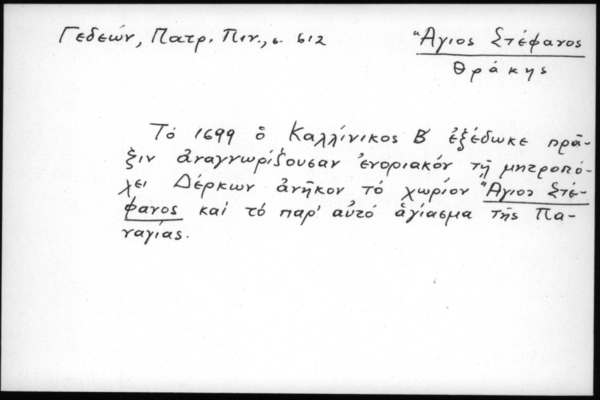 Γεδεών, Πατρ. Πιν., σ. 612
Ἅγιος Στέφανος
Θράκης
Τό 1699 ὁ Καλλίνικος Β΄ ἐξέδωκε πρᾶ-
ξιν ἀναγνωρίζουσαν ἐνοριακόν τῇ μητροπό-
λει Δέρκων ἀνῆκον τό χωρίον Ἅγιος Στέ-
φανος καί τό παρ' αὐτό ἁγίασμα τῆς Πα-
ναγίας.